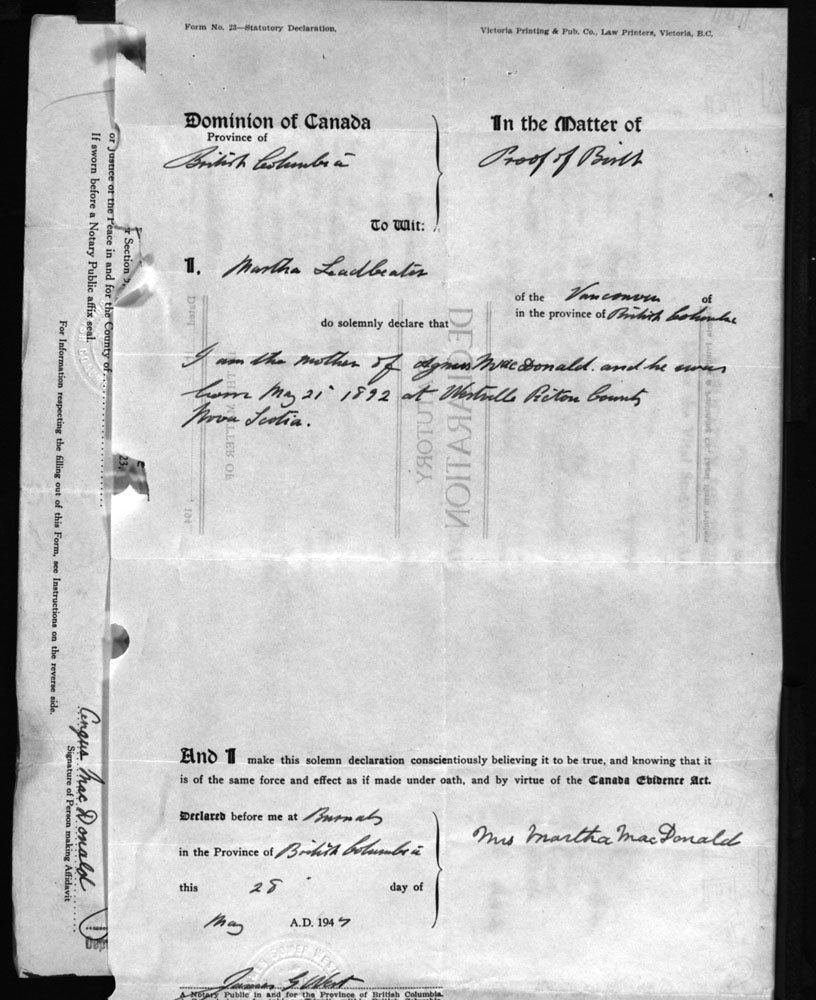 Form No. 23—Statutory Declaration.
Victoria Printing & Pub. Co., Law Printers, Victoria, B.C.
Dominion of Canada
Province of
British Columbia
To Wit:
In the Matter of
Proof of Birth
I, Martha Leadbeater
of the Vancouver of
in the province of British Columbia
do solemnly declare that
I am the mother of MacDonald. and he was
born May 21 1892 at Westville Pictou County
Nova Scotia.
And I make this solemn declaration conscientiously believing it to be true, and knowing that it
is of the same force and effect as if made under oath, and by virtue of the Canada Evidence Act.
Declared before me at Burnaby
in the Province of British Columbia
this 28 day of
May A.D. 1947
Mrs Martha MacDonald
James G West
A Notary Public in and for the Province of British Columbia.
or Justice of the Peace in and for the County of
If sworn before a Notary Public affix seal.
For Information respecting the filling out of this Form, see Instructions on the reverse side.
Angus MacDonald
Signature of Person making Affidavit
r Section
23,
DECLARATION
STATUTORY
IN THE MATTER OF
Dated
194